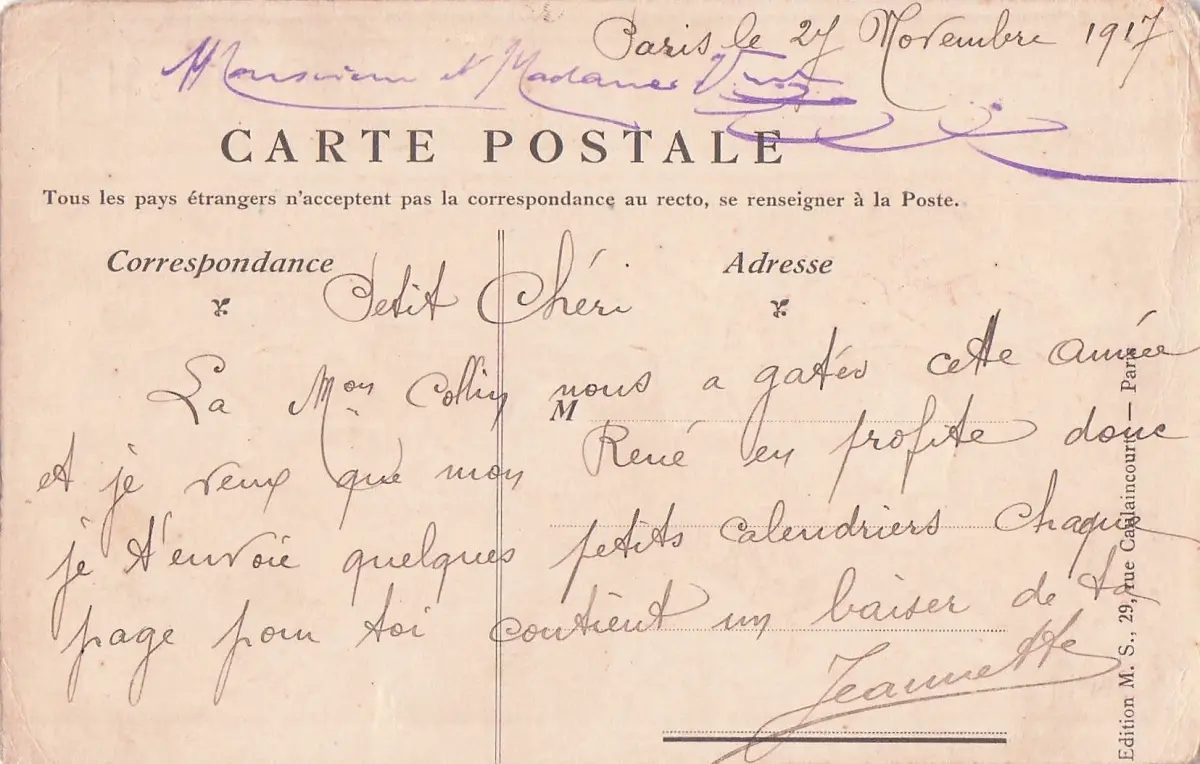 Paris le 27 Novembre 1917
Monsieur et Madame
CARTE POSTALE
Tous les pays étrangers n'acceptent pas la correspondance au recto, se renseigner à la Poste.
Correspondance
Adresse
Petit Chéri
La Mon Collin nous a gatés cette année
M
et je veux que mon René en profite donc
je t'envoie quelques petits calendriers Chaque
page pour toi contient un baiser de ta
Jeannette
Edition M. S., 29, rue Caulaincourt — Paris